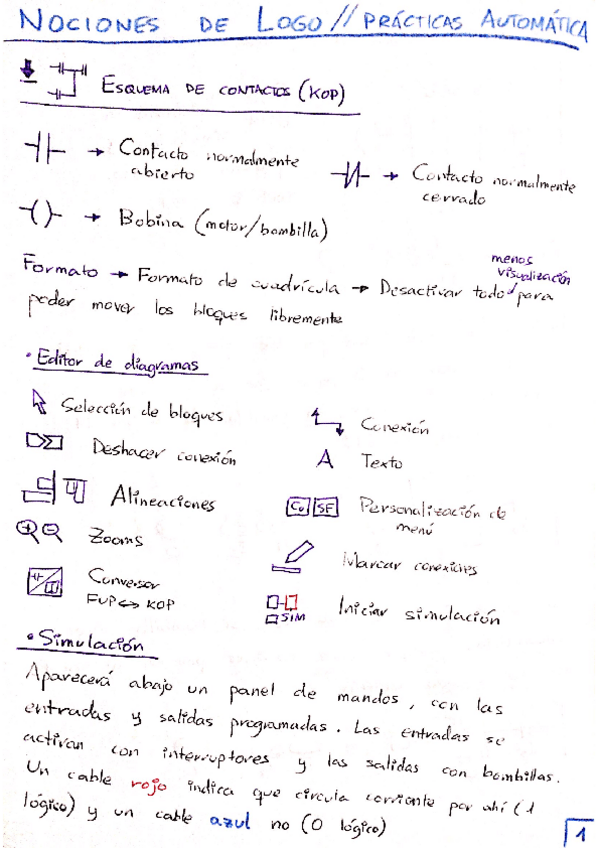 NOCIONES DE LOGO // PRÁCTICAS AUTOMÁTICA
ESQUEMA DE CONTACTOS (KOP)
→ Contacto normalmente abierto
→ Contacto normalmente cerrado
→ Bobina (motor/bombilla)
Formato → Formato de cuadrícula → Desactivar todo para
menos visualización
poder mover los bloques libremente
• Editor de diagramas
Selección de bloques
Conexión
Deshacer conexión
A Texto
Alineaciones
Co SF Personalización de menú
Zooms
Marcar conexiones
Conversor
FUP ↔ KOP
SIM Iniciar simulación
• Simulación
Aparecerá abajo un panel de mandos, con las
entradas y salidas programadas. Las entradas se
activan con interruptores y las salidas con bombillas.
Un cable rojo indica que circula corriente por ahí (1
lógico) y un cable azul no (0 lógico)
1